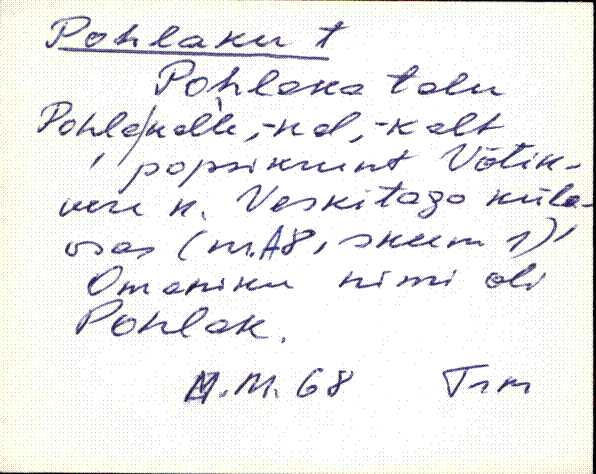 Pohlaku t
Pohlaka talu
Pohla/kalle, -kal, -kalt
, popsikrunt Võtik-
vere k. Veskitaga küla-
osas (m.A8, skeem 1),
Omaniku nimi oli
Pohlak.
M.M. 68 Trm